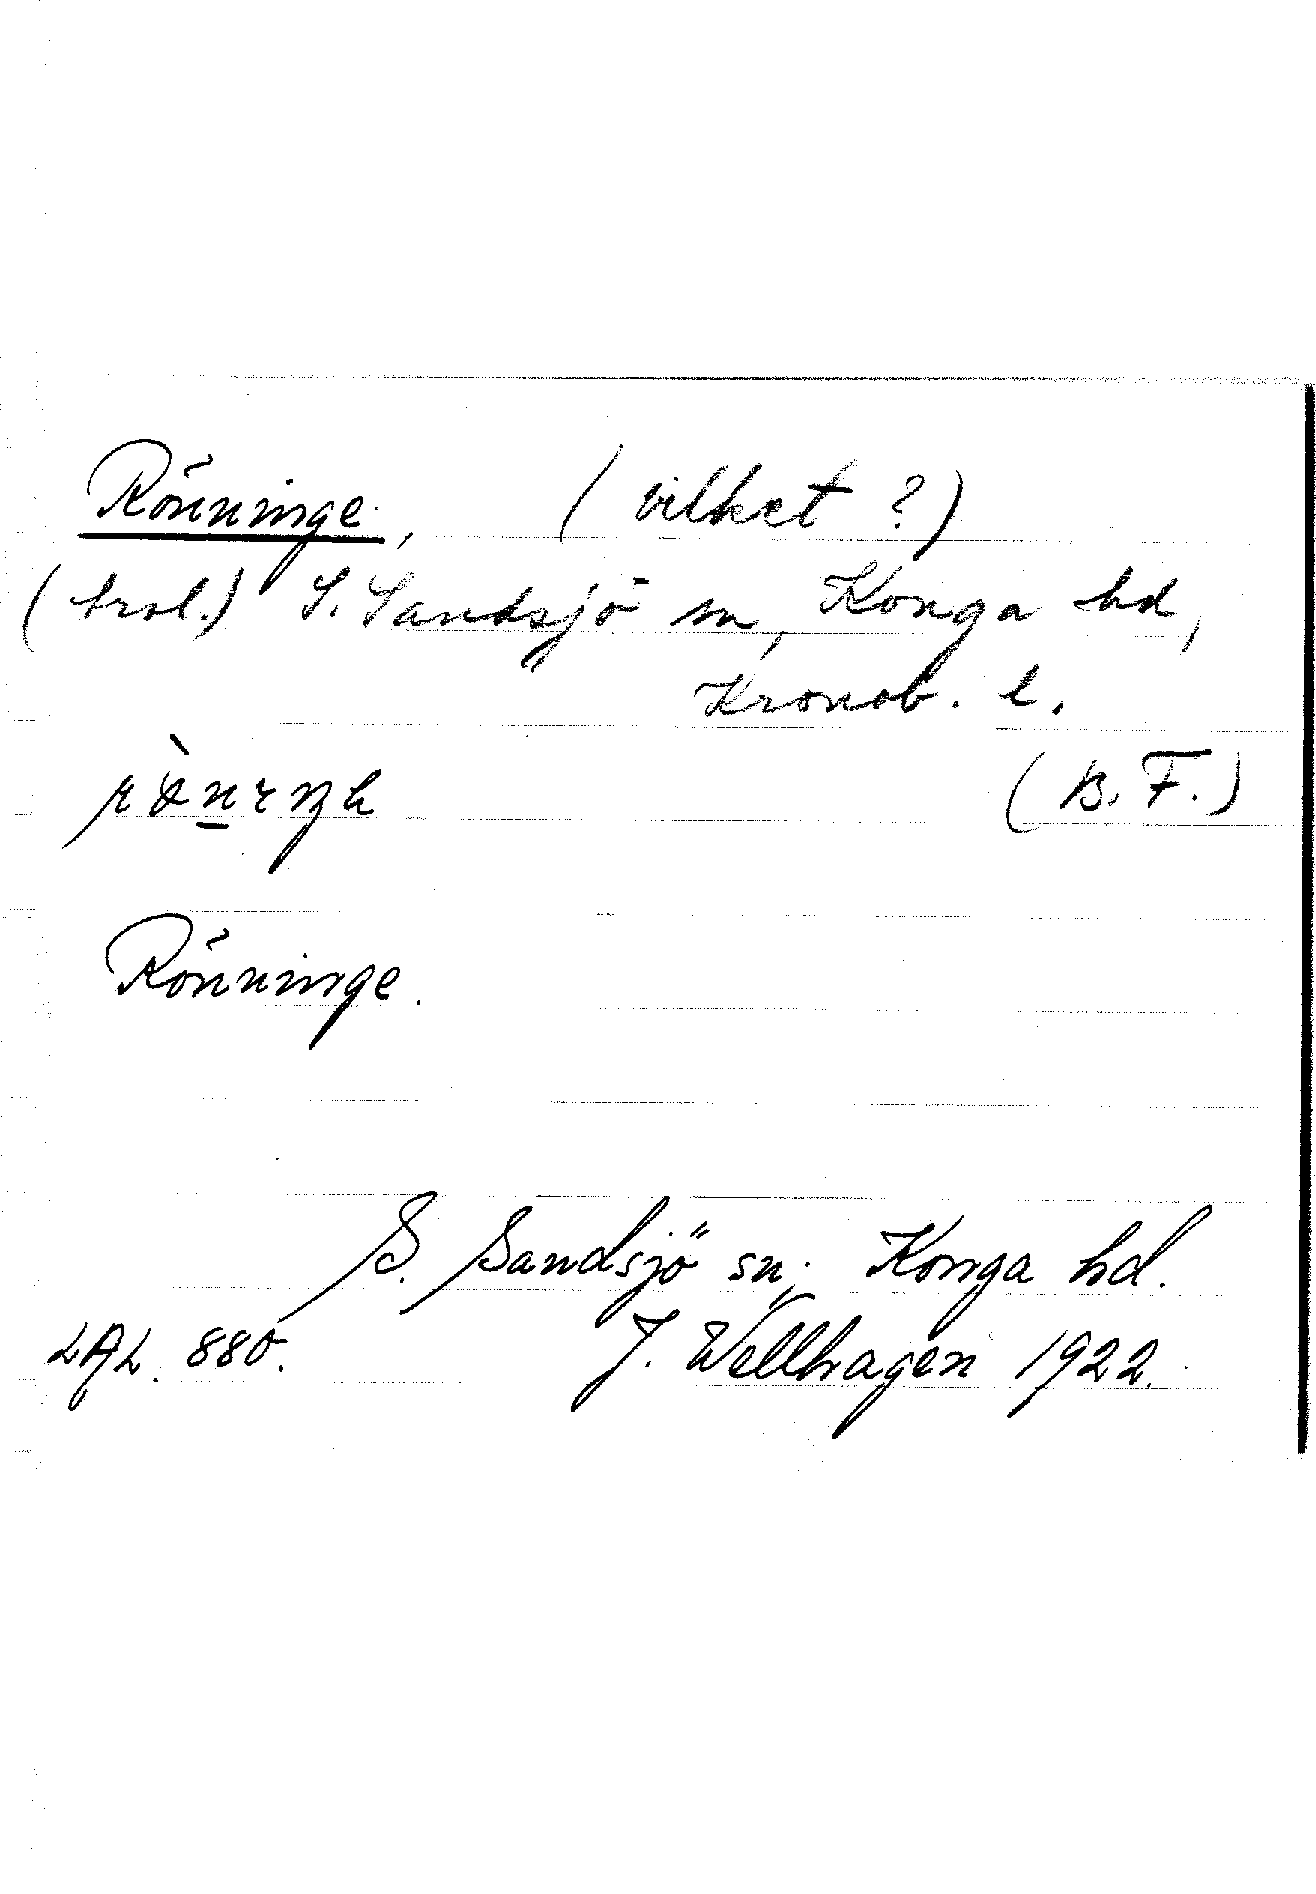 Rönninge, (vilket ?)
(trol.) S. Sandsjö sn, Konga hd,
Kronob. l.
(B. F.)
Rönninge.
S. Sandsjö sn. Konga hd.
LAL. 880. J. Wellhagen 1922.